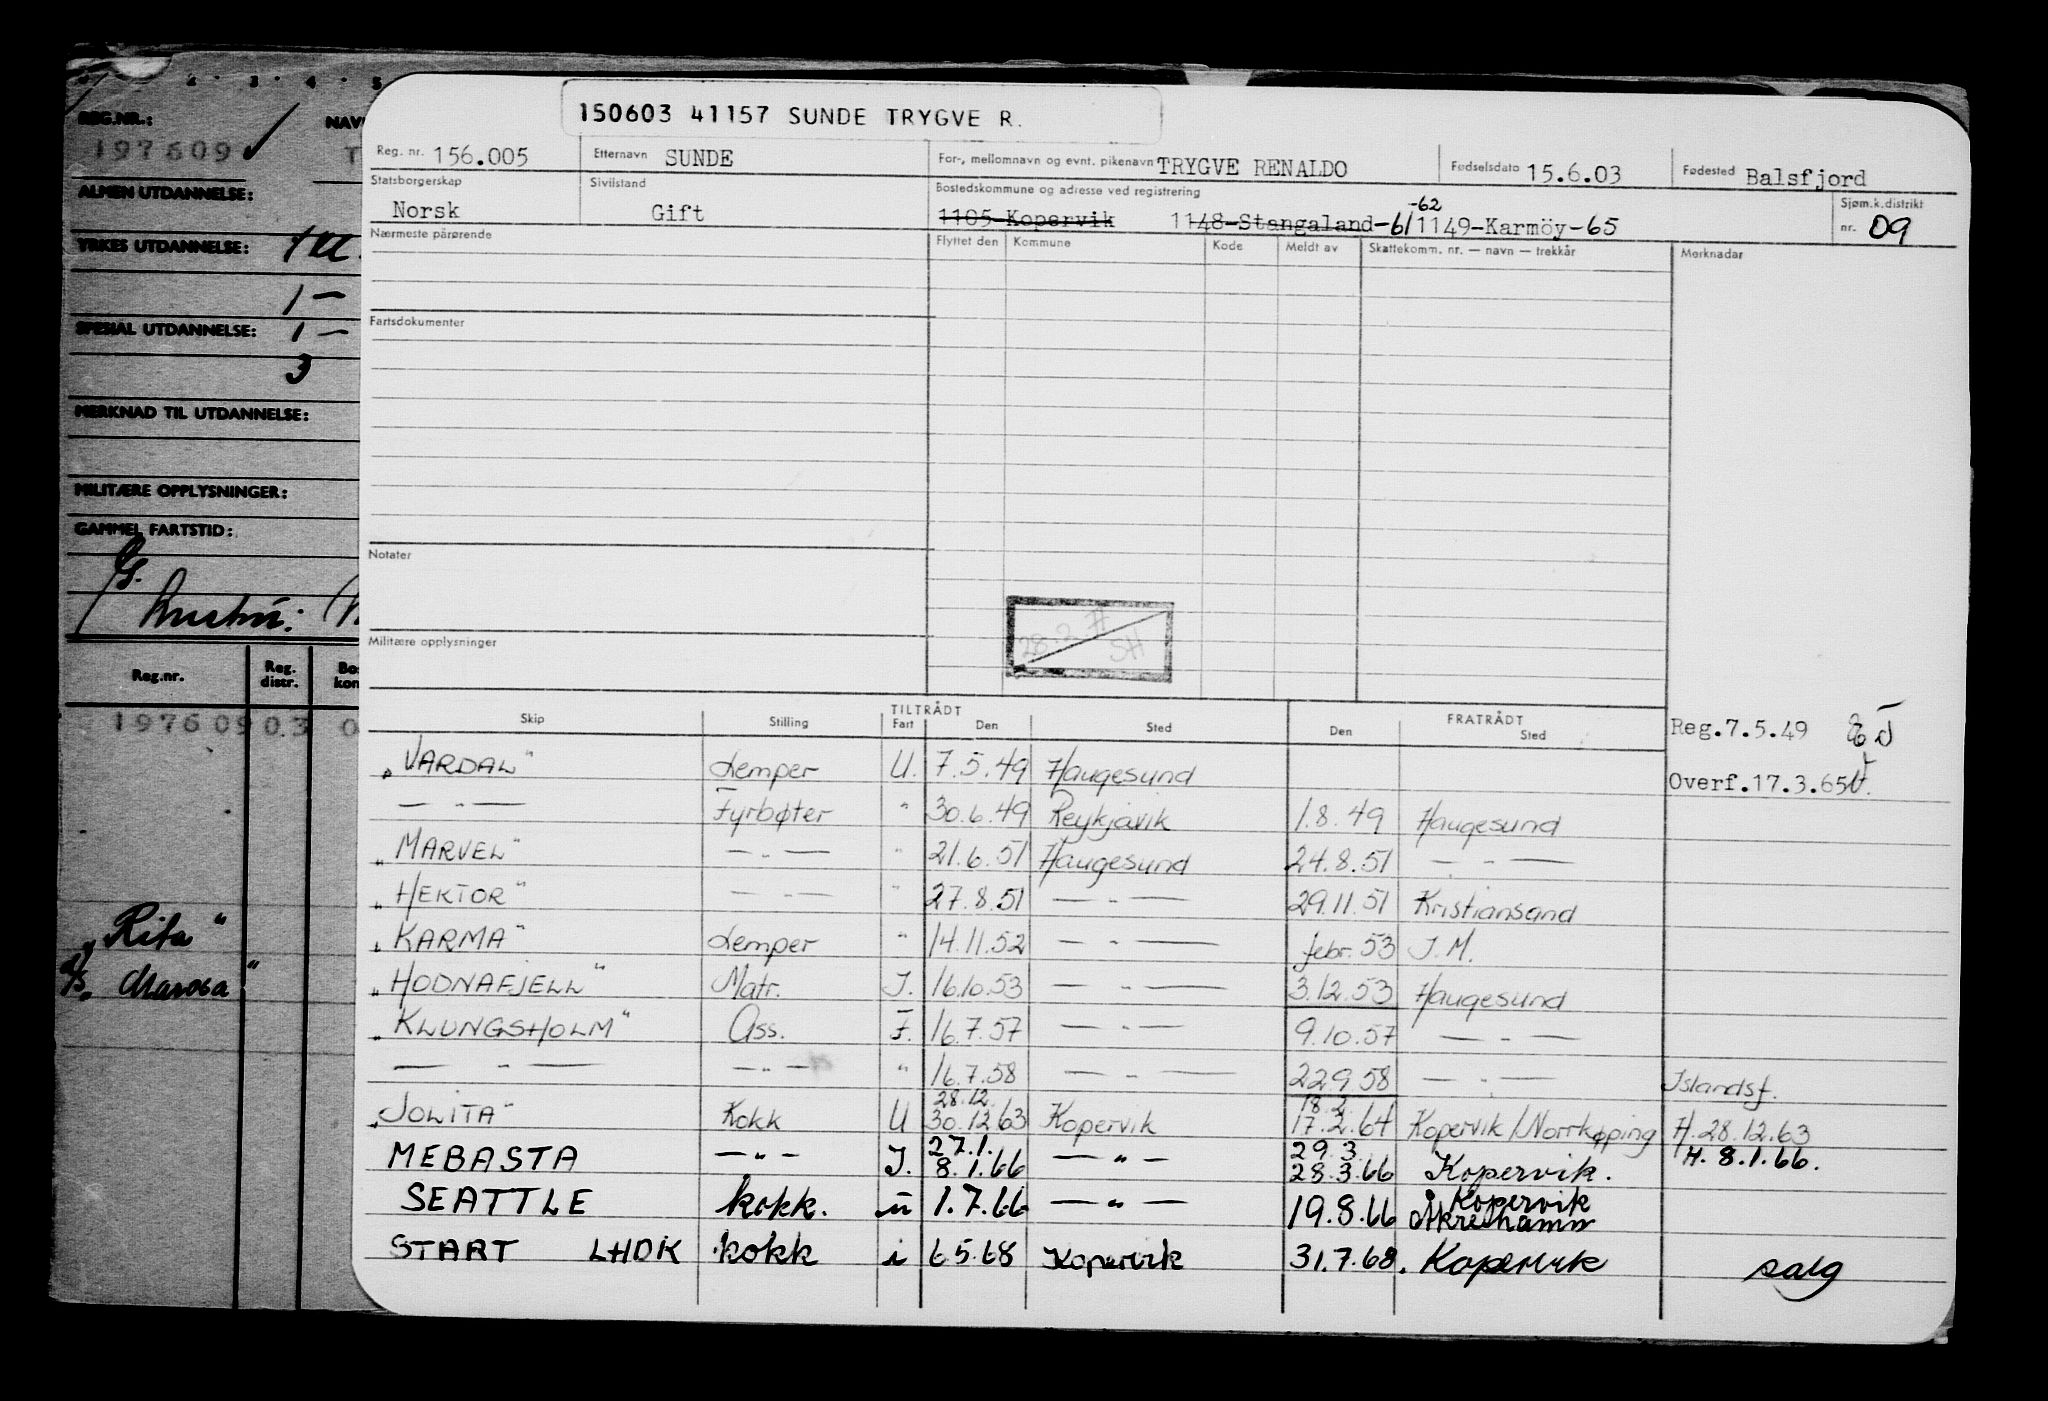 2 · 3 · 4 · 5
REG.NR.:
197609
ALMEN UTDANNELSE:
YRKES UTDANNELSE:
1 —
SPESIAL UTDANNELSE: 1 —
3
MERKNAD TIL UTDANNELSE:
MILITÆRE OPPLYSNINGER:
GAMMEL FARTSTID:
Reg.nr. Reg. distr.
197609 03
"Rita"
150603 41157 SUNDE TRYGVE R.
Reg. nr. 156.005 Etternavn SUNDE For-, mellomnavn og evnt. pikenavn TRYGVE RENALDO Fødselsdato 15.6.03 Fødested Balsfjord
Statsborgerskap Sivilstand Bostedskommune og adresse ved registrering Sjøm.k.distrikt
Norsk Gift 1105-Kopervik 1148-Stangaland-61 -62 1149-Karmöy-65 nr. 09
Nærmeste pårørende Flyttet den Kommune Kode Meldt av Skattekomm. nr. — navn — trekkår Merknadar
Fartsdokumenter
Notater
28.2.71
SH
Militære opplysninger
TILTRÅDT FRATRÅDT
Skip Stilling Fart Den Sted Den Sted
Reg.7.5.49
"VARDAL" Lemper U. 7.5.49 Haugesund
Overf.17.3.65
— " — Fyrbøter " 30.6.49 Reykjavik 1.8.49 Haugesund
"MARVEL" — " — " 21.6.51 Haugesund 24.8.51 — " —
"HEKTOR" — " — " 27.8.51 — " — 29.11.51 Kristiansand
"KARMA" Lemper " 14.11.52 — " — febr. 53 I.M.
"HODNAFJELL" Matr. I. 16.10.53 — " — 3.12.53 Haugesund
"KLUNGSHOLM" Ass. F. 16.7.57 — " — 9.10.57 — " —
— " — — " — " 16.7.58 — " — 22.9.58 — " — Islandsf.
28.12. 18.2.
"JOLITA" Kokk U 30.12.63 Kopervik 17.2.64 Kopervik/Norrkøping H. 28.12.63
27.1. 29.3.
MEBASTA — " — I. 8.1.66 — " — 28.3.66 Kopervik. H. 8.1.66.
SEATTLE kokk. u 1.7.66 — " — 19.8.66 Kopervik
Åkrehamn
START LHDK kokk i 6.5.68 Kopervik 31.7.68. Kopervik salg